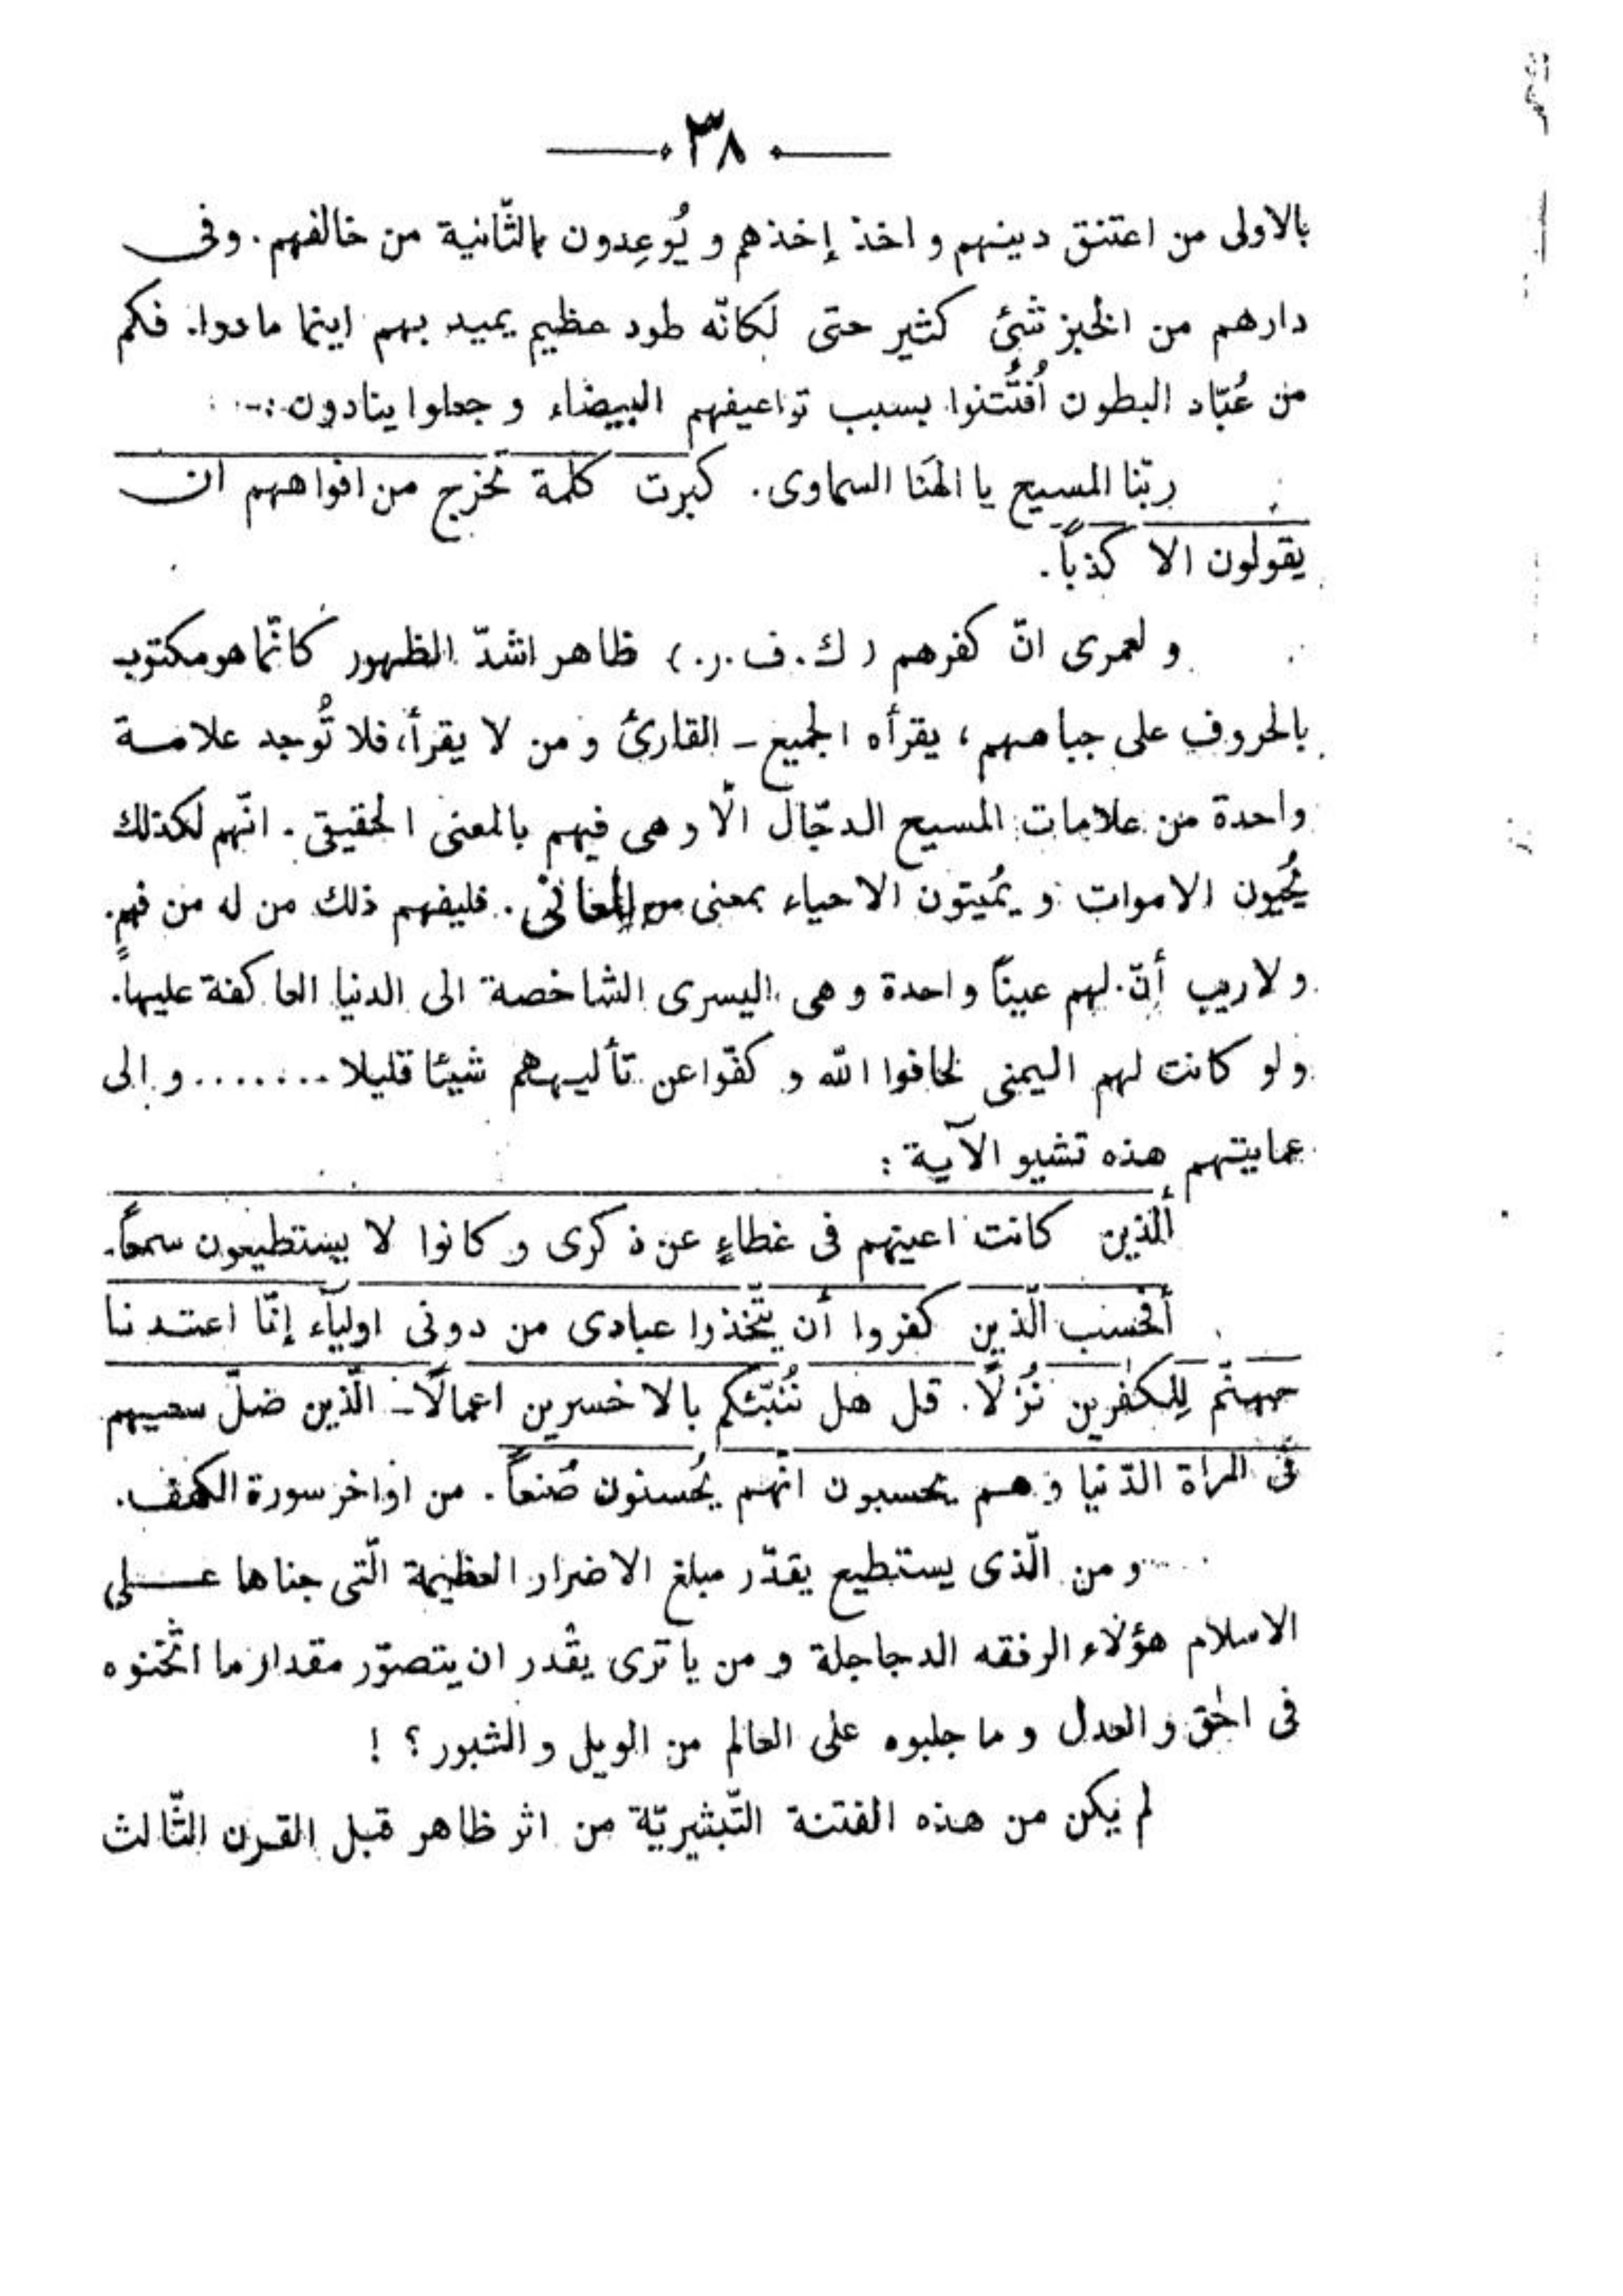 ٣٨
بالاولى من اعتنق دينهم و اخذ إخذهم و يُوعِدون بالثّانية من خالفهم. وفى
دارهم من الخبز شئ كثير حتى لكانّه طود عظيم يميد بهم اينما مادوا. فكم
من عُبّاد البطون اُفتُتنوا بسبب تواغيفهم البيضاء و جعلوا ينادون :-
ربّنا المسيح يا الهَنا السماوى. كبرت كلمة تخرج من افواههم ان
يقولون الا كذباً.
و لعمرى انّ كفرهم ( ك. ف. ر. ) ظاهر اشدّ الظهور كانّما هو مكتوب
بالحروف على جباههم، يقرأه الجميع ـ القارئ و من لا يقرأ، فلا تُوجد علامة
واحدة من علامات المسيح الدجّال الّا و هى فيهم بالمعنى الحقيقى. انّهم لكذلك
يُحيون الاموات و يُميتون الاحياء بمعنى من المعانى. فليفهم ذلك من له من فهمٍ.
و لاريب أنّ لهم عينًا واحدة و هى اليسرى الشاخصة الى الدنيا العاكفة عليها.
ولو كانت لهم اليمنى لخافوا الله و كفّوا عن تأليههم شيئا قليلا ....... و الى
عمايتهم هذه تشير الآية :
ألّذين كانت اعينهم فى غطاءٍ عن ذكرى و كانوا لا يستطيعون سمعاً.
أفحسب الّذين كفروا أن يتّخذوا عبادى من دونى اوليآء إنّا اعتدنا
جهنّم لِلكفرين نُزُلًا. قل هل نُنبّئكم بالاخسرين اعمالًا ـ الّذين ضلّ سعيهم
فى الحياة الدّنيا و هم يحسبون انّهم يُحسنون صُنعاً. من اواخر سورة الكهف.
.... و من الّذى يستطيع يقدّر مبلغ الاضرار العظيمة الّتى جناها على
الاسلام هؤلاء الرفقه الدجاجلة و من يا ترى يقْدر ان يتصوّر مقدار ما اثخنوه
فى الحق و العدل و ما جلبوه على العالم من الويل و الثبور ؟ !
لم يكن من هذه الفتنة التّبشيريّة من اثر ظاهر قبل القرن الثّالث